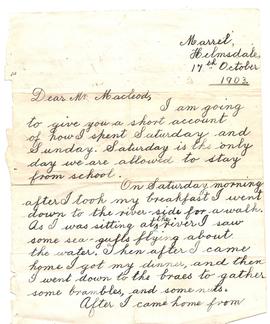 Marrel,
Helmsdale,
17th October
1903.
Dear Mr. Macleod,
I am going
to give you a short account
of how I spent Saturday and
Sunday. Saturday is the only
day we are allowed to stay
from school.
On Saturday morning
after I took my breakfast I went
down to the river-side for a walk.
As I was sitting at river I saw
some sea-gulls flying about
the water. Then after I came
home I got my dinner, and then
I went down to the braes to gather
some brambles, and some nuts.
After I came home from